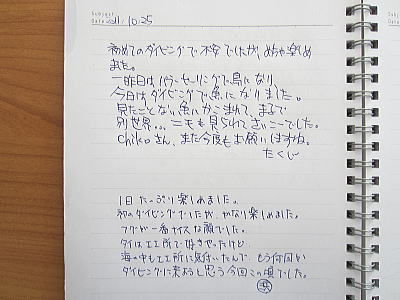 Subject
Date 2011. 10.25
初めてのダイビングで不安でしたが、めちゃ楽しめ
ました。
一昨日はパラセーリングで鳥になり、
今日はダイビングで魚になりました。
見たことない魚にかこまれて、まるで
別世界... ニモも見られてさいこーでした。
chikoさん、また今度もお願いしますね。
たくじ
1日たっぷり楽しめました。
初のダイビングでしたが、かなり楽しめました。
フグが一番ナイスな顔でした。
タイは工工所で好きやったけど、
海の中も工工所に気付いたんで、もう何回か
ダイビングに来ようと思う今回この頃でした。